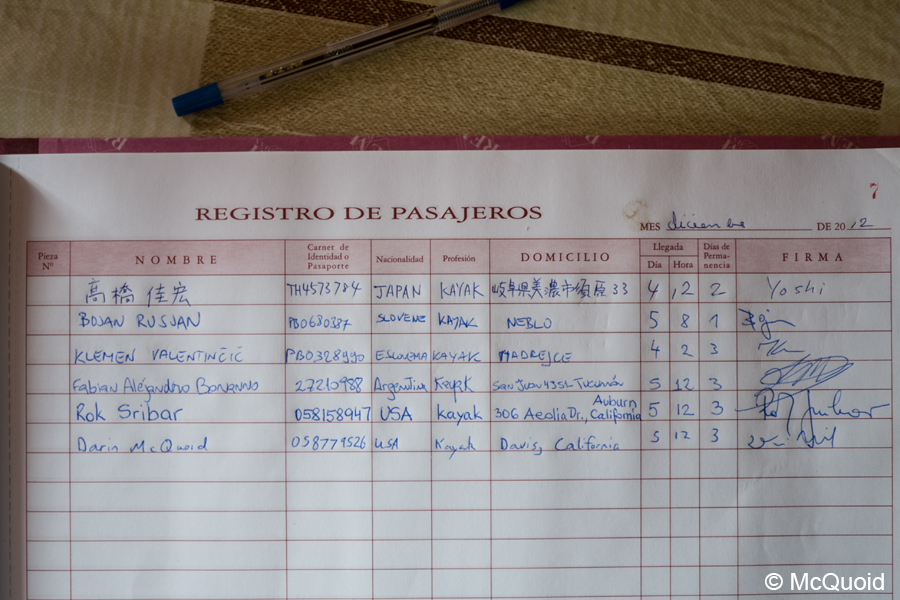 7
REGISTRO DE PASAJEROS
MES diciembre DE 2012
Pieza Nº NOMBRE Carnet de Identidad o Pasaporte Nacionalidad Profesión DOMICILIO Llegada Día Hora Días de Permanencia FIRMA
高橋 佳宏 TH4573784 JAPAN KAYAK 岐阜県美濃市須原33 4 12 2 Yoshi
BOJAN RUSJAN PB0680387 SLOVENE KAYAK NEBLO 5 8 1
KLEMEN VALENTINČIČ PB0328990 ESLOVEMA KAYAK MADREJCE 4 2 3
Fabian Alejandro Bonanno 27210988 Argentina Kayak San Juan 4351 Tucumán 5 12 3
Rok Sribar 058158947 USA kayak 306 Aeolia Dr., Auburn California 5 12 3
Darin McQuoid 058771526 USA Kayak Davis, California 5 12 3
© McQuoid